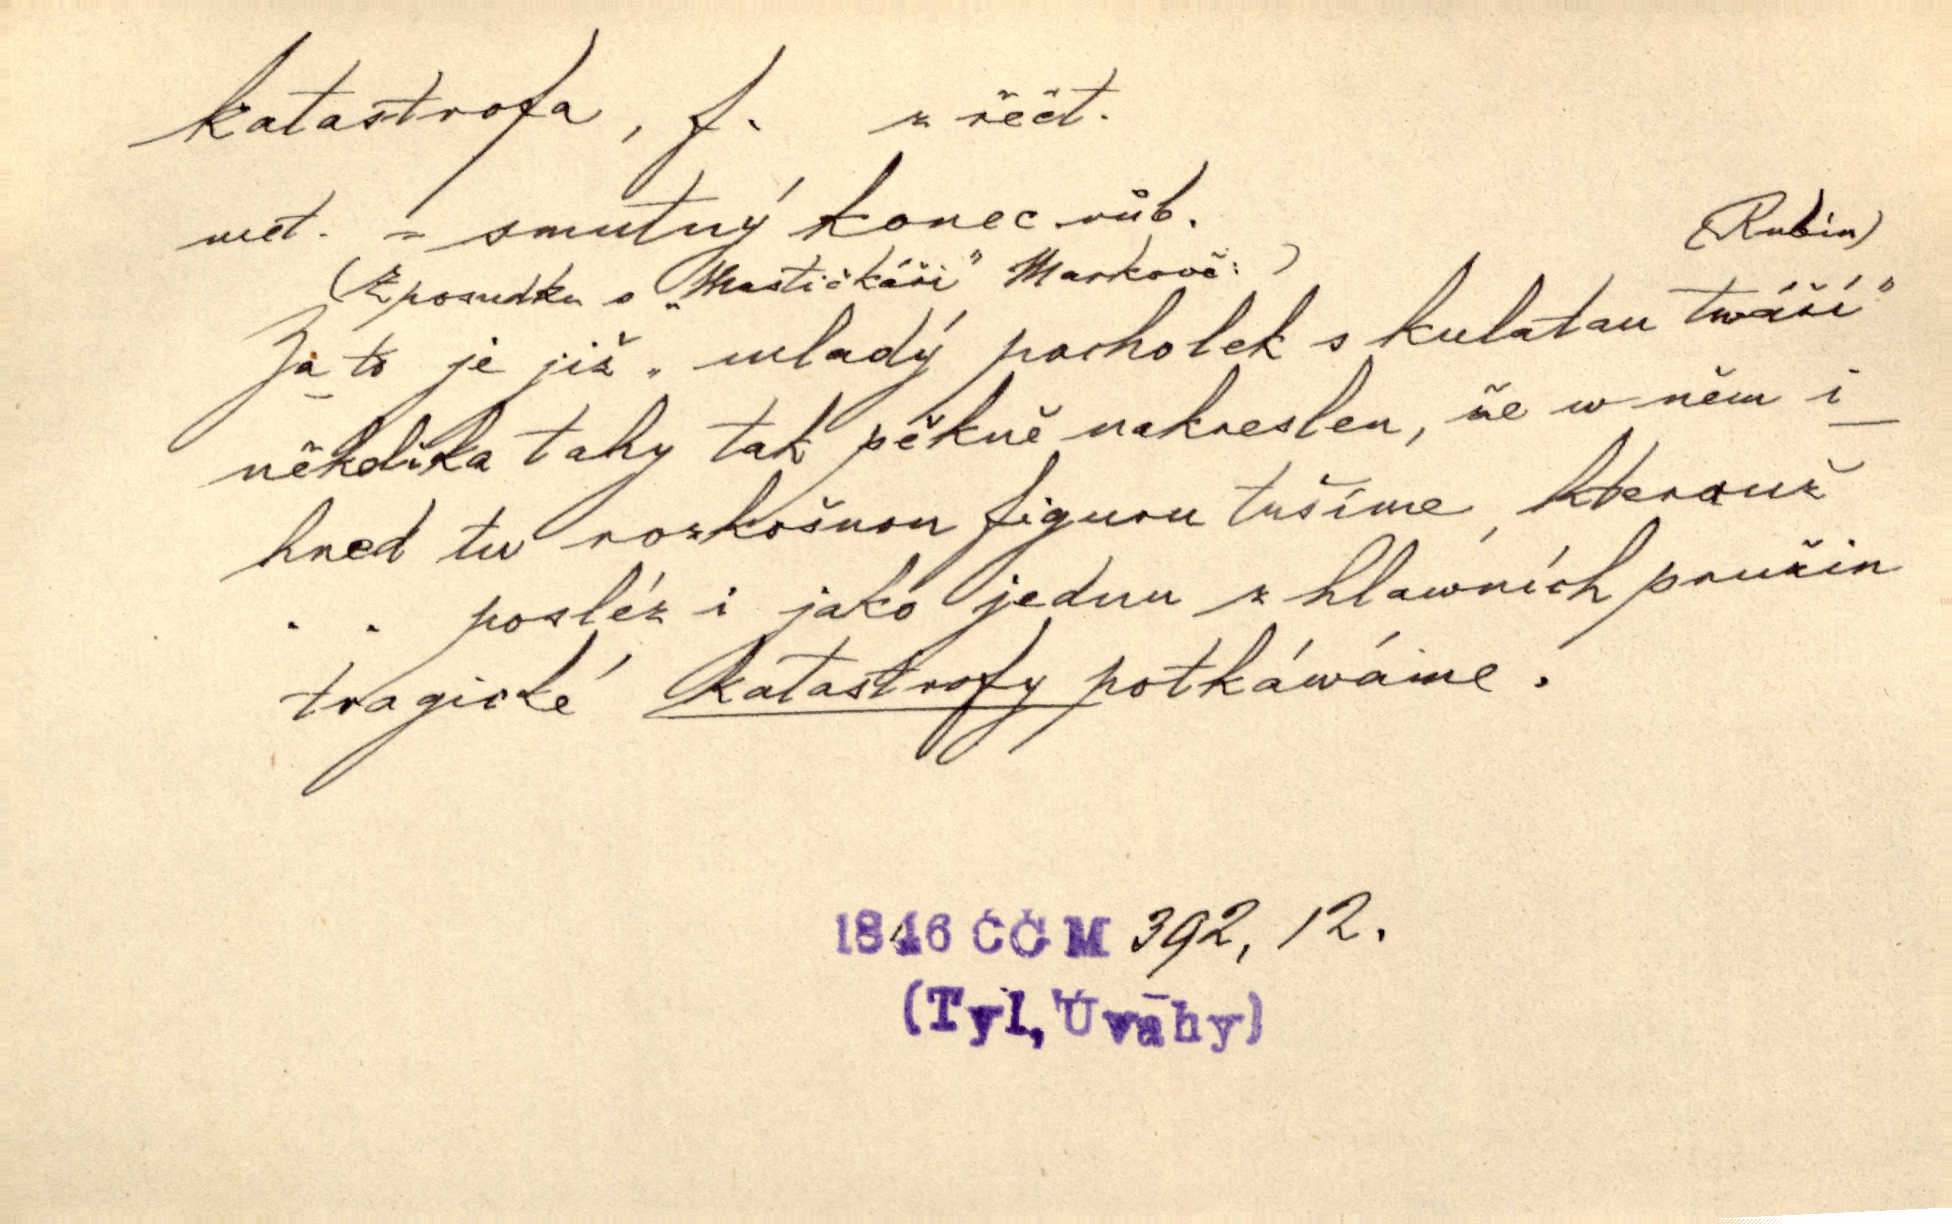 katastrofa, f. z řečt.
met. = smutný konec vůb.
(Rubín)
(Z posudku o „Mastičkáři" Markově:)
Ja to je již „mladý pacholek s kulatau twáší"
několika tahy tak pěkně nakreslen, že w něm i
hned tu rozkošnou figuru tušíme, kterouž
. . posléz i jako jednu z hlawních pružin
tragické katastrofy potkáwáme.
1846 ČČM 392, 12.
(Tyl, Úvahy)